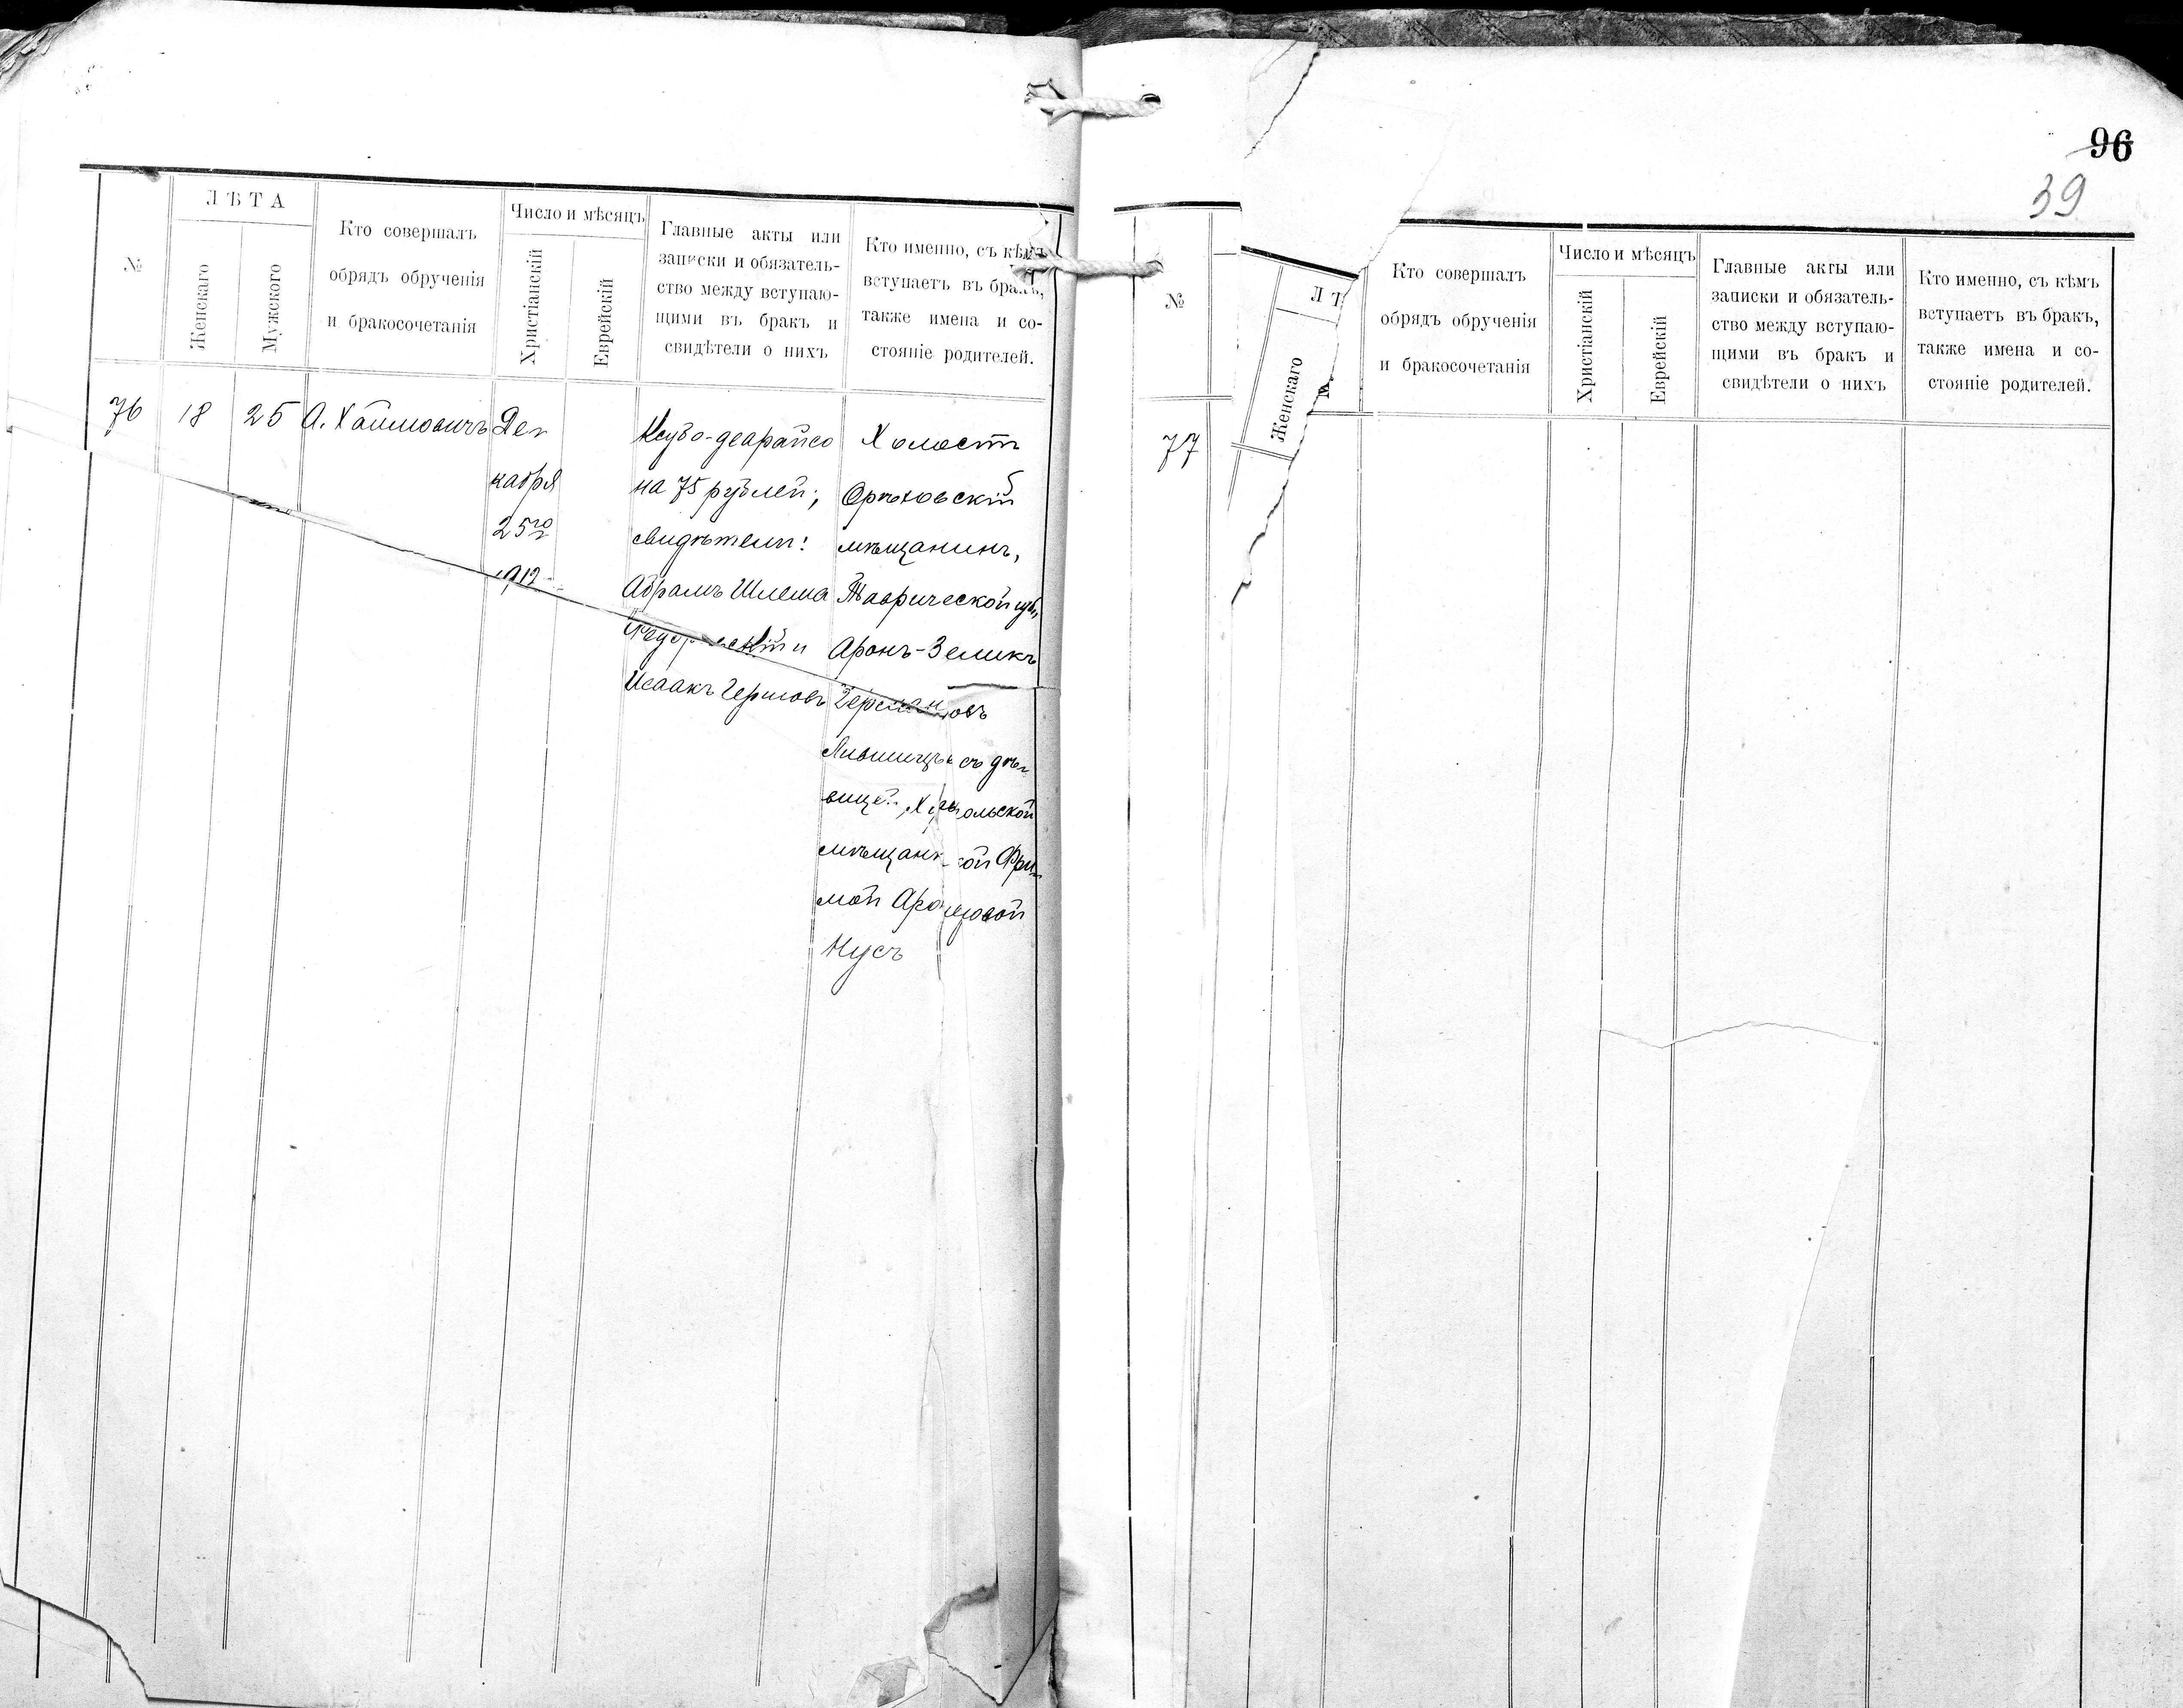 96
39
№
ЛѢТА
Женскаго
Мужского
Кто совершалъ
обрядъ обрученія
и бракосочетанія
Число и мѣсяцъ
Христіанскій
Еврейскій
Главные акты или
записки и обязатель-
ство между вступаю-
щими въ бракъ и
свидѣтели о нихъ
Кто именно, съ кѣмъ
вступаетъ въ бракъ,
также имена и со-
стояніе родителей.
76
18
25
А. Хаимовичъ
Де-
кабря
25го
1912
Ксубо-деарайсо
на 75 рублей;
свидѣтели:
Абрамъ Шлема
и
Исаакъ Гершовъ
Холостъ
Орѣховскій
мѣщанинъ,
Таврической губ.,
Аронъ-Зеликъ
Герсмановъ
Лившицъ съ дѣ-
вицей,
мѣщанкой Фри-
мой
Кусъ
№
ЛѢ
Женскаго
М
Кто совершалъ
обрядъ обрученія
и бракосочетанія
Число и мѣсяцъ
Христіанскій
Еврейскій
Главные акты или
записки и обязатель-
ство между вступаю-
щими въ бракъ и
свидѣтели о нихъ
Кто именно, съ кѣмъ
вступаетъ въ бракъ,
также имена и со-
стояніе родителей.
77